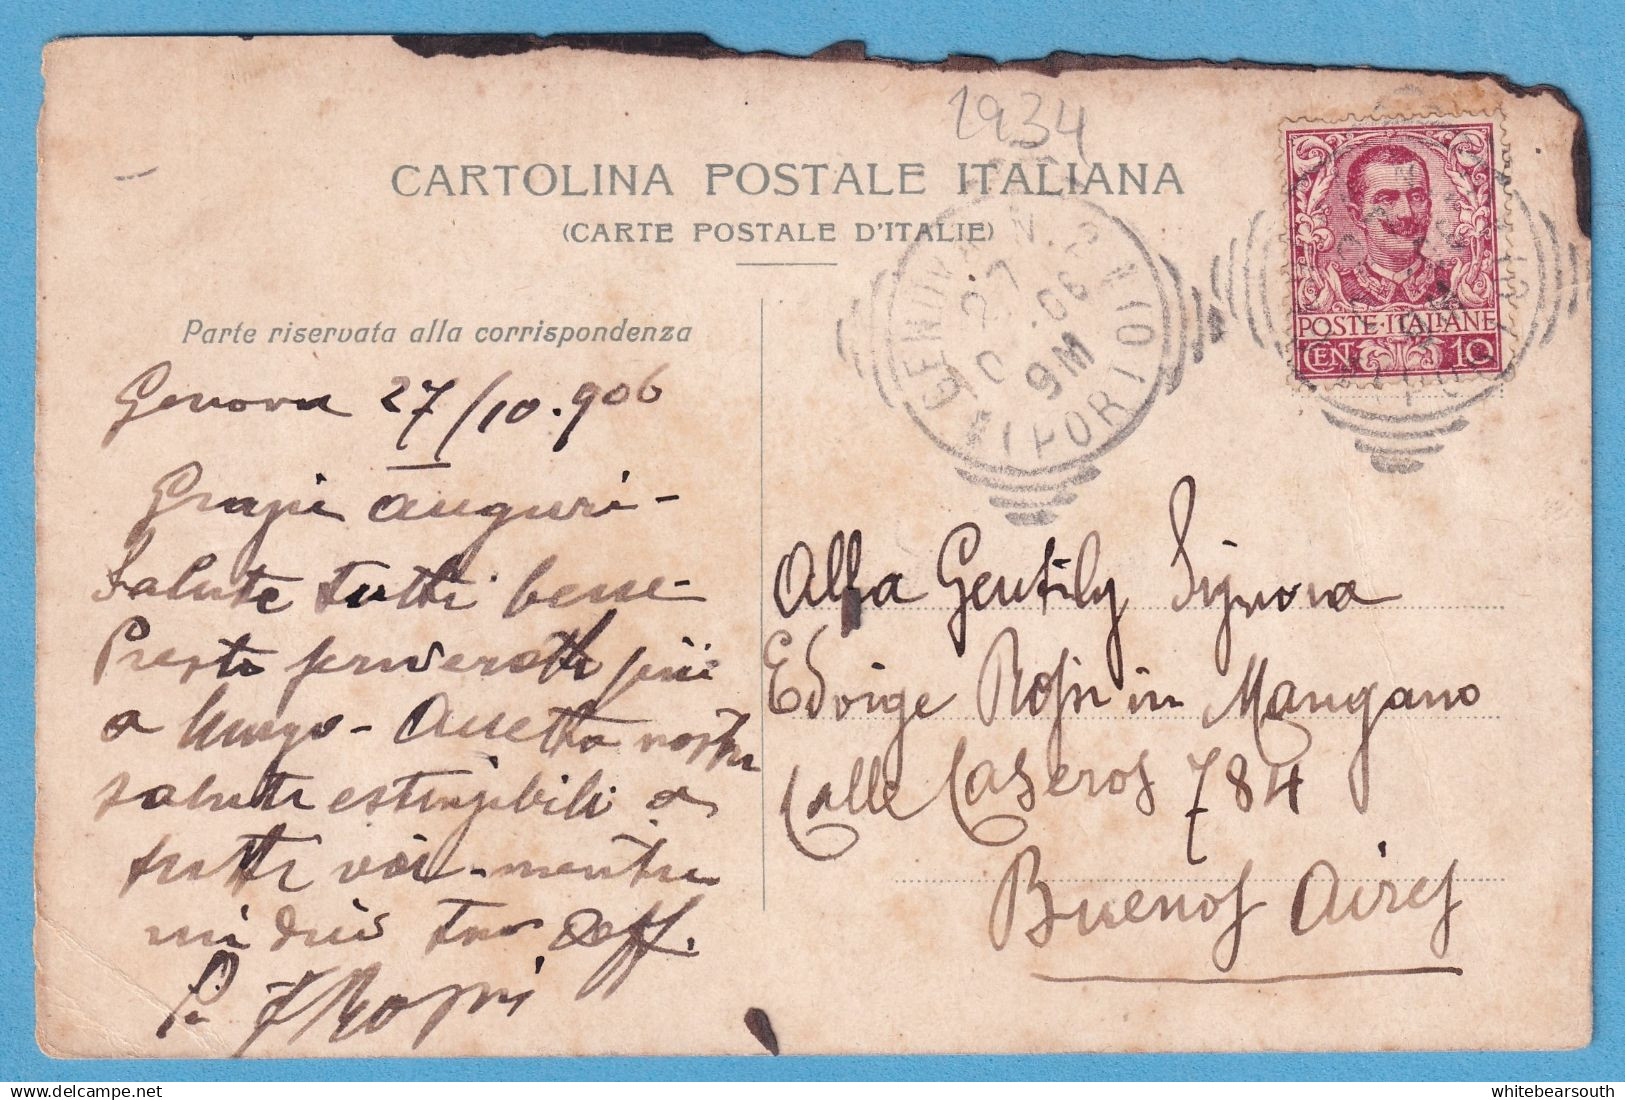 1934
CARTOLINA POSTALE ITALIANA
(CARTE POSTALE D'ITALIE)
Parte riservata alla corrispondenza
Genova 27/10.906
Grazie auguri-
Salute tutti bene-
Presto più
a lungo- Accetta nostri
saluti estensibili a
tutti voi-mentre
mi dico tuo aff.
Rossi
27 10 06
9M
POSTE·ITALIANE
CEN 10
Alla Gentily Signora
Edvige Rossi in Mangano
Calle Caseros 784
Buenos Aires
whitebearsouth